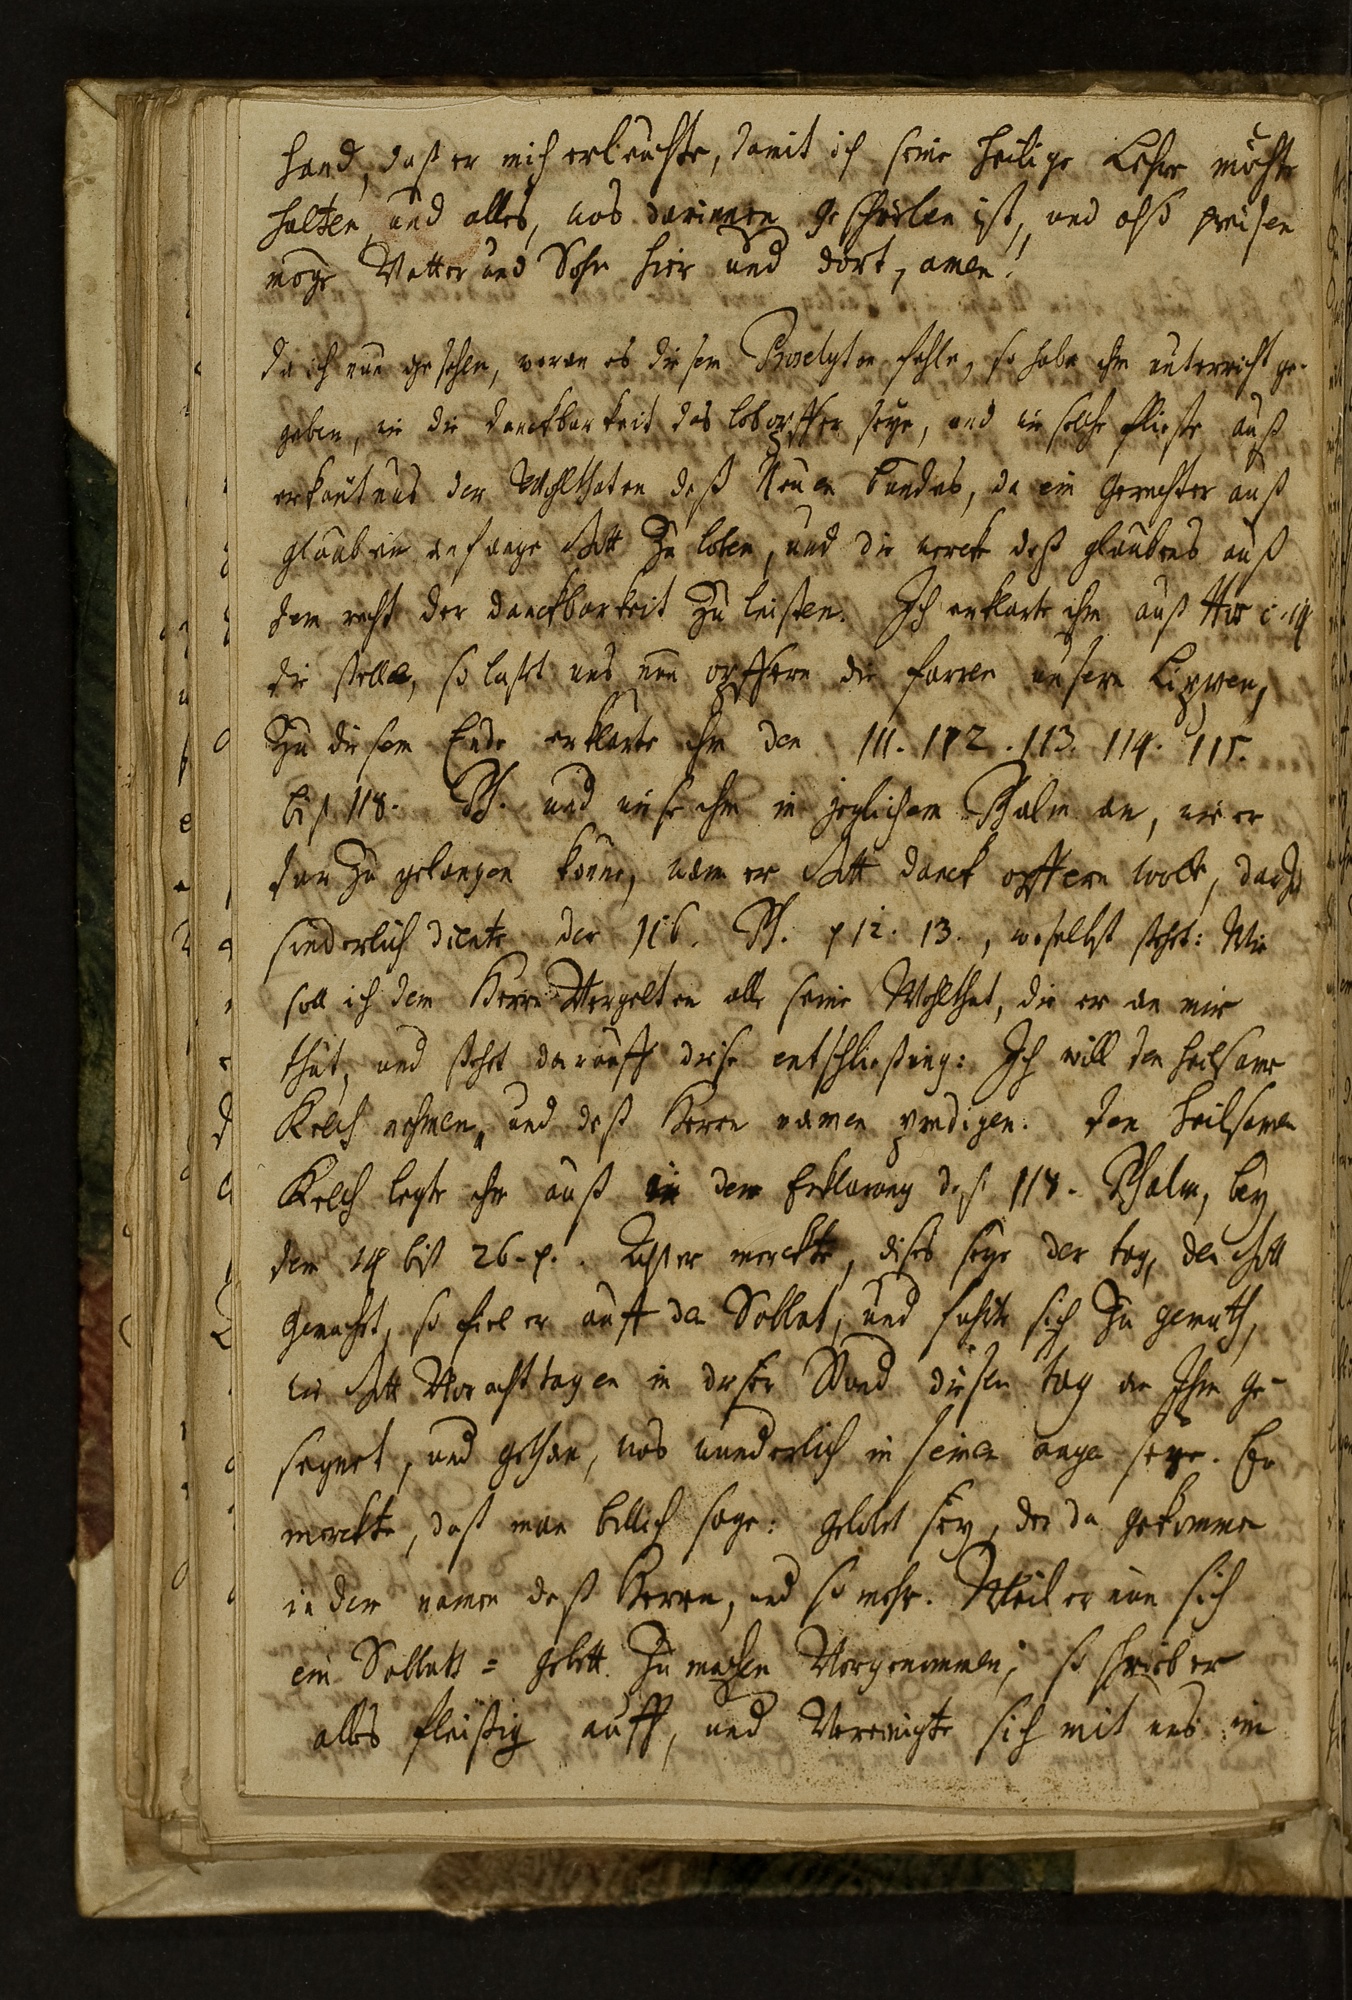 hand, daß er mich erleuchte, damit ich seine heilige Lehre möchte
halten, und alles, was darinnen geschrieben ist, und also preisen
möge Vatter und Sohn hier und dort, amen!
da ich nun gesehen, woran es diesem Proselyten fehle, so habe ihm unterricht ge-
geben, wie die danckbarkeit das lobopffer seye, und wie solche fliesse auß
erkäntnus der Wohlthaten deß Neuen bundes, da ein Gerechter auß
glauben anfange Gott zu loben, und die wercke deß glaubens auß
dem recht der danckbarkeit zu leisten. Ich erklärte ihm auß Hos c. 14
die stelle, so lasset uns nun opffern die farren unserer Lippen,
Zu diesem Ende erklärte ihm den 111. 112. 113. 114. 115.
biß 118. Ps. und wiese ihm in jeglichem Psalm an, wie er
darzu gelangen könne, wann er Gott danck opffern wolte, dazu
sonderlich diente der 116. Ps. 12. 13., woselbst stehet: Wie
soll ich dem Herrn Vergelten alle seine Wohlthat, die er an mir
thut, und stehet darauff diese entschließung: Ich will den heilsamen
Kelch nehmen, und deß Herrn namen predigen. den heilsamen
Kelch legte ihm auß in der Erklärung deß 118. Psalm, bey
dem 14 biß 26. Als er merckte, dieses seye der tag, den Gott
gemacht, so fiel er auff den Sabbat, und führte sich zu gemüth,
wie Gott Vor acht tagen in dieser Stund diesen tag an Ihm ge-
segnet, und gethan, was wunderlich in seinen augen seye. Er
merckte, daß man billich sage: gelobet sey, der da gekommen
in dem namen deß Herrn, und so mehr. Weil er nun sich
ein Sabbats = gebett zu machen Vorgenommen, so schrieb er
alles fleissig auff, und Vereinigte sich mit uns im